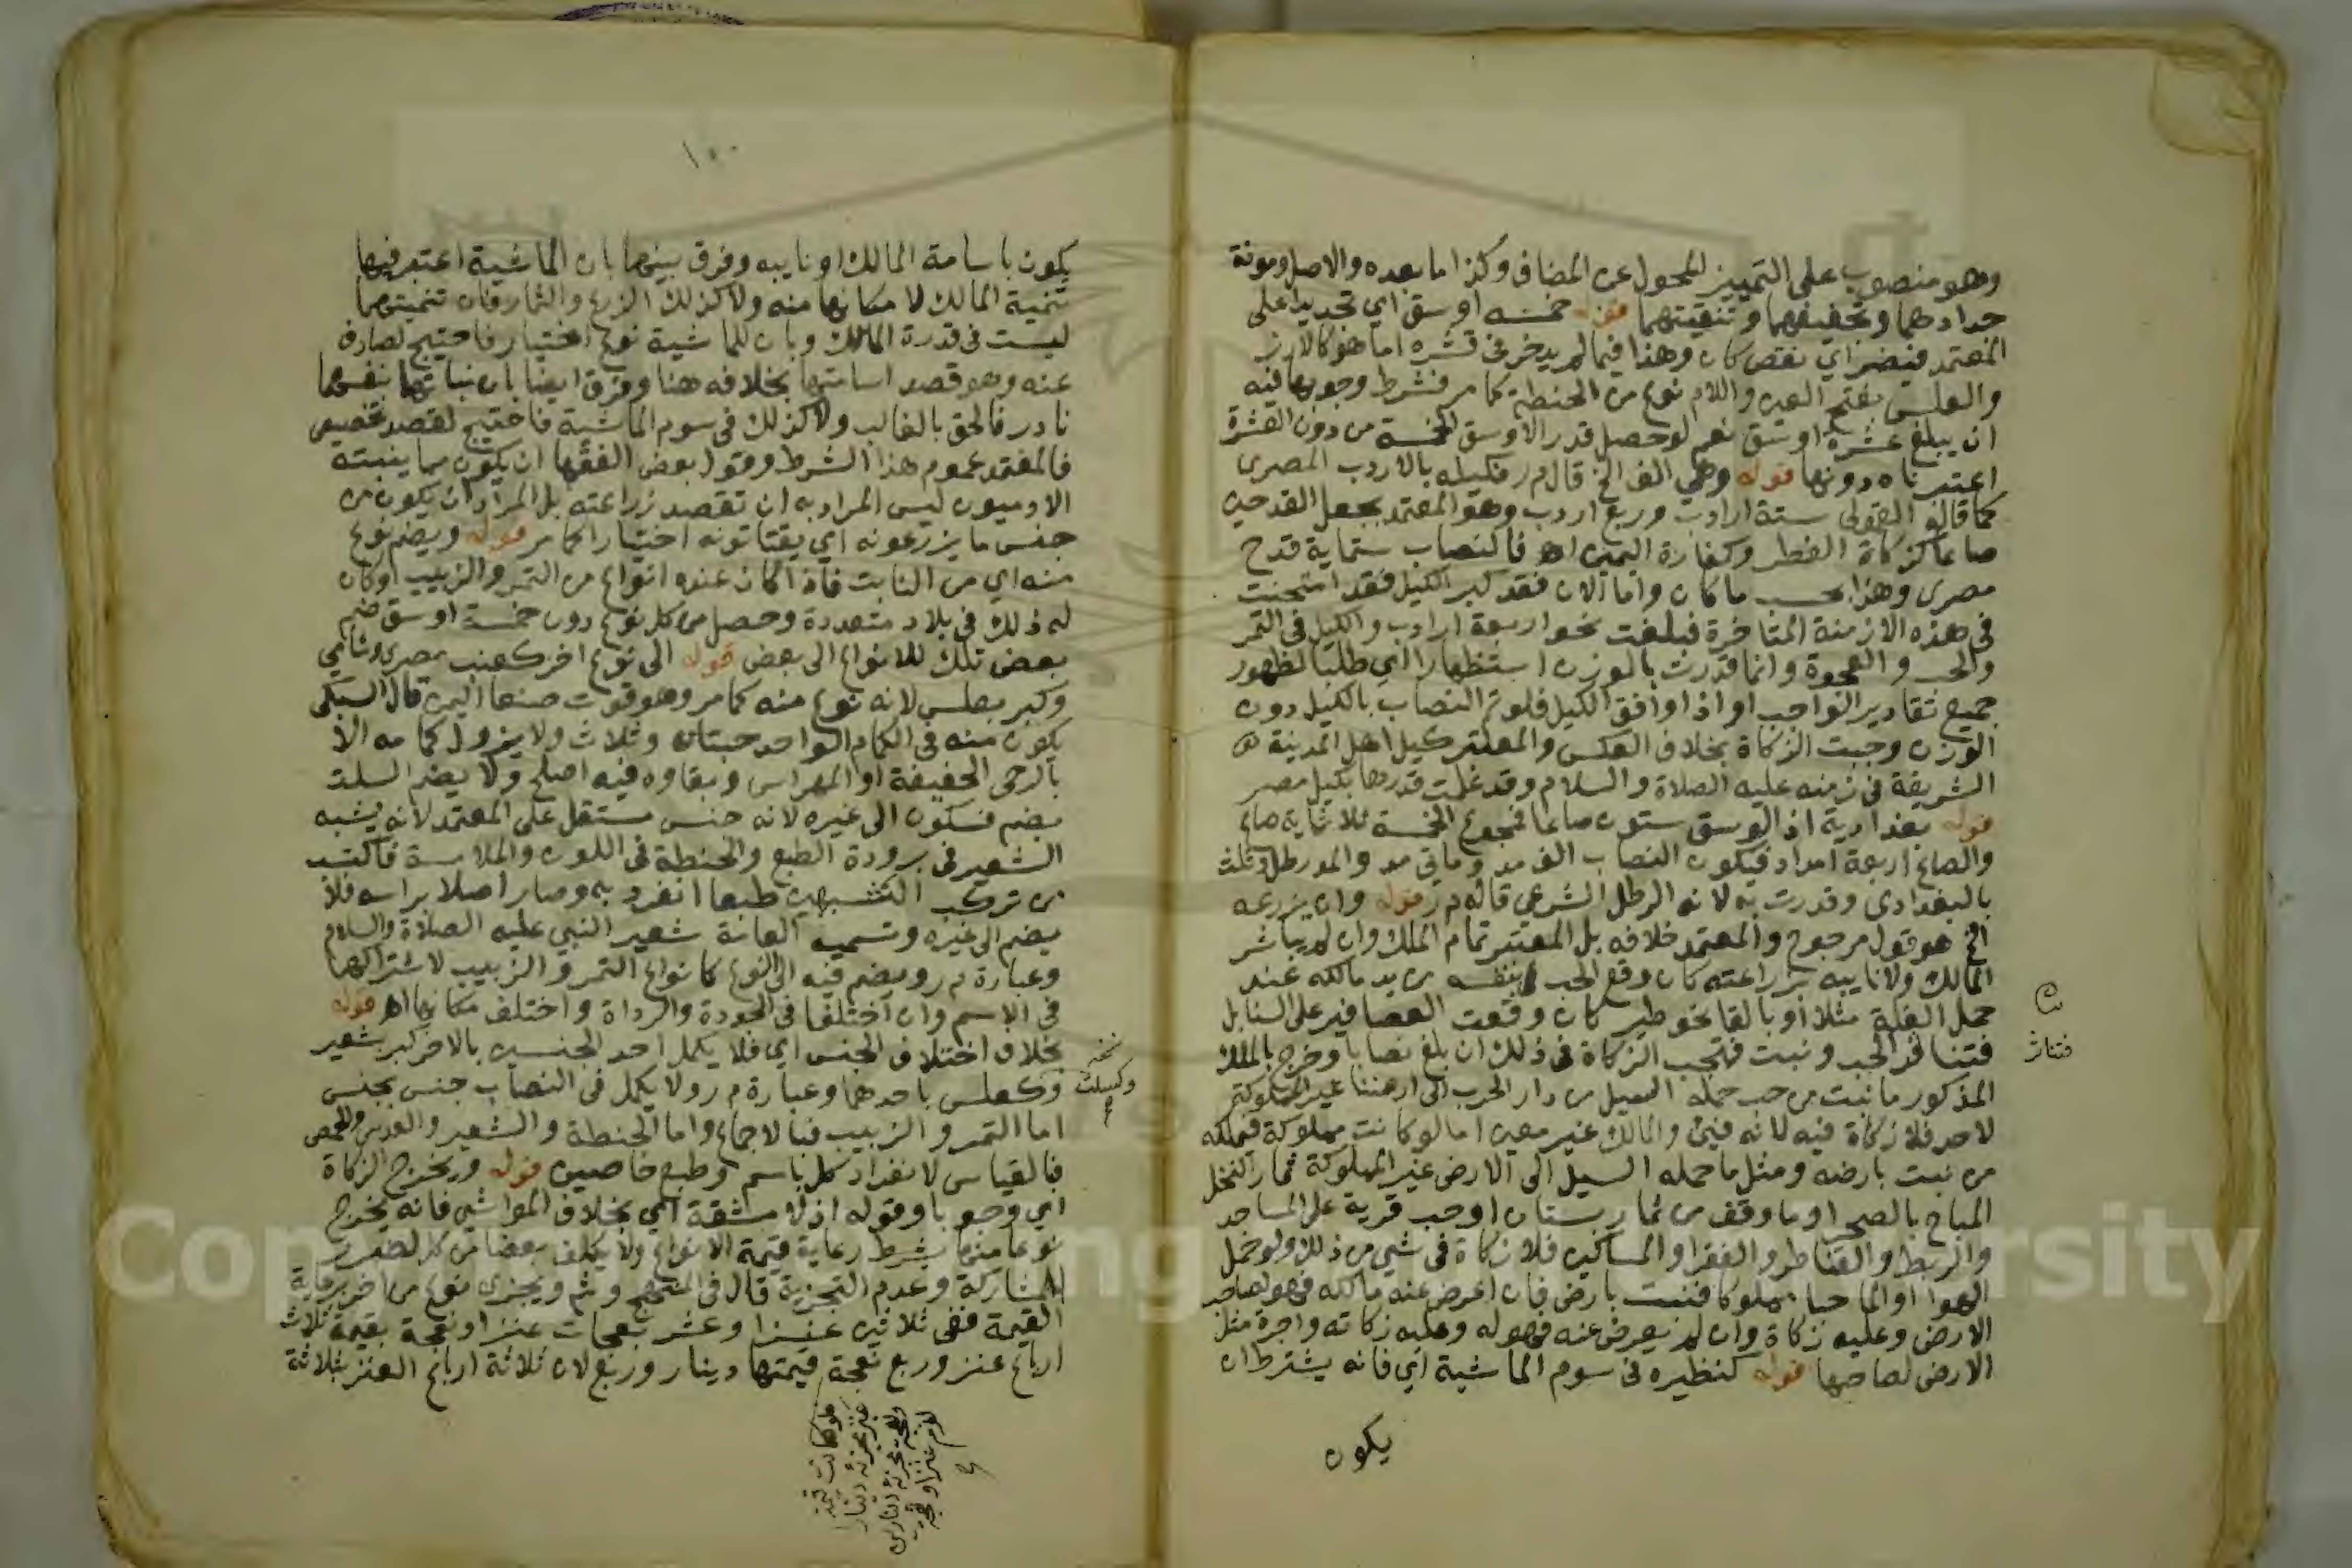 وهو منصوب على التمييز المحول عن المضاف وكذا ما بعده والاصل ومونة
جدادهما وتجفيفهما وتنقيتهما قوله خمسه اوسق اي تحديدا على
المعتمد فيضر اي نقص كان وهذا فيما لم يدخر في قشره اما هو كالارز
والعلس بفتح العين واللام نوع من الحنطة كما مر فشرط وجوبها فيه
ان يبلغ عشرة اوسق نعم لو حصل قدر الاوسق الخمسة من دون العشرة
اعتبرناه دونها قوله وهي الف الخ قال م ر فكيله بالاردب المصرى
كما قاله القمولى ستة ارادب وربع اردب وهو المعتمد بجعل القدحين
صاعا كزكاة الفطر وكفارة اليمين اهـ فالنصاب ستماية قدح
مصرى وهذا بحسب ما كان واما الان فقد كبر الكيل فقد امتحنت
في هذه الازمنة المتاخرة فبلغت نحو اربعة ارادب والكيل في التمر
والحب والعجوة وانما قدرت بالوزن استظهارا اي طلبا لظهور
جميع تقادير الواجب او اذا وافق الكيل فلو تم النصاب بالكيل دون
الوزن وجبت الزكاة بخلاف العكس والمعتبر كيل اهل المدينة
الشريفة في زمنه عليه الصلاة والسلام وقد علمت قدرها بكيل مصر
قوله بغدادية اذ الوسق ستون صاعا فمجموع الخمسة ثلاثماية صاع
والصاع اربعة امداد فيكون النصاب الف مد ومايتي مد والمد رطل وثلث
بالبغدادى وقدرت به لانه الرطل الشرعي قاله م ر قوله وان يزرعه
الخ هو قول مرجوح والمعتمد خلافه بل المعتبر تمام الملك وان لم يباشر
المالك ولا نايبه زراعته كان وقع الحب بنفسه من يد مالكه عند
حمل الغلة مثلا او بالقا نحو طير كان وقعت العصافير على السنابل
فتناثر الحب ونبت فتجب الزكاة في ذلك ان بلغ نصابا وخرج بالملك
المذكور ما نبت من حب حمله السيل من دار الحرب الى ارضنا غير المملوكة
لاحد فلا زكاة فيه لانه فيئ والمالك غير معين اما لو كانت مملوكة فيملكه
من نبت بارضه ومثل ما حمله السيل الى الارض غير المملوكة ثمار النخل
المباح بالصحرا وما وقف من ثمار بستان او حب قرية على المساجد
والربط والقناطر والفقرا والمساكين فلا زكاة في شي من ذلك ولو حمل
الهوا او الما حبا مملوكا فنبت بارض فان اعرض عنه مالكه فهو لصاحب
الارض وعليه زكاة وان لم يعرض عنه فهو له وعليه زكاته واجرة مثل
الارض لصاحبها قوله كنظيره في سوم الماشية اي فانه يشترط ان
يكون
فتناثر
١٥٠
يكون باسامة المالك او نايبه وفرق بينهما بان الماشية اعتبر فيها
تنمية المالك لامكانها منه ولا كذلك الزرع والثمار فان تنميتهما
ليست في قدرة المالك وبان للماشية نوع اختيار فاحتيج لصارف
عنه وهو قصد اسامتها بخلافه هنا وفرق ايضا بان نباتهما بنفسهما
نادر فالحق بالغالب ولا كذلك في سوم الماشية فاحتيج لقصد مخصص
فالمعتمد عموم هذا الشرط وقول بعض الفقها ان يكون مما ينبته
الادميون ليس المراد به ان تقصد زراعته بل المراد ان يكون من
جنس ما يزرعونه اي يقتاتونه اختيارا كما مر قوله ويضم نوع
منه اي من النابت فاذا كان عنده انواع من التمر والزبيب او كان
له ذلك في بلاد متعددة وحصل من كل نوع دون خمسة اوسق ضم
بعض تلك للانواع الى بعض قوله الى نوع اخر كعنب مصرى وشامي
وكبر بعلس لانه نوع منه كما مر وهو قوت صنعا اليمن قال السبكى
يكون منه في الكمام الواحد حبتان وثلاث ولا يزول كمامه الا
بالرحى الخفيفة او المهراس وبقاوه فيه اصلح ولا يضم السلت
بضم فسكون الى غيره لانه جنس مستقل على المعتمد لانه يشبه
الشعير في برودة الطبع والحنطة في اللون والملاسة فاكتسب
من تركب الشبهين طبعا انفرد به وصار اصلا براسه فلا
يضم الى غيره وتسميه العامة شعير النبي عليه الصلاة والسلام
وعبارة م ر ويضم فيه النوع الى النوع كانواع التمر والزبيب لاشتراكهما
في الاسم وان اختلفا في الجودة والرداة واختلف مكانهما اهـ قوله
بخلاف اختلاف الجنس اي فلا يكمل احد الجنسين بالاخر كبر بشعير
وكعلس باحدهما وعبارة م ر ولا يكمل في النصاب جنس بجنس
اما التمر والزبيب فبالاجماع واما الحنطة والشعير والعدس والحمص
فبالقياس لانفراد كل باسم وطبع خاصين قوله ويخرج الزكاة
اي وجوبا وقوله اذ لا مشقة اي بخلاف المواشي فانه يخرج
نوعا منها بشرط رعاية قيمة الانواع ولا يكلف بعضا من كل لضرر
المشاركة وعدم التجزية قال في المنهج وثم ويجزى نوع من اخر برعاية
القيمة ففي ثلاثين عنزا وعشر نعجات عنز او نعجة بقيمة ثلاث
ارباع عنز وربع نعجة قيمتها دينار وربع لان ثلاثة ارباع العنز بثلاثة
نسخه
وكسلت
فلو كانت قيمة
عنز مجزئة دينار
ونعجة مجزئة دينارين
لزم عنز او نعجة